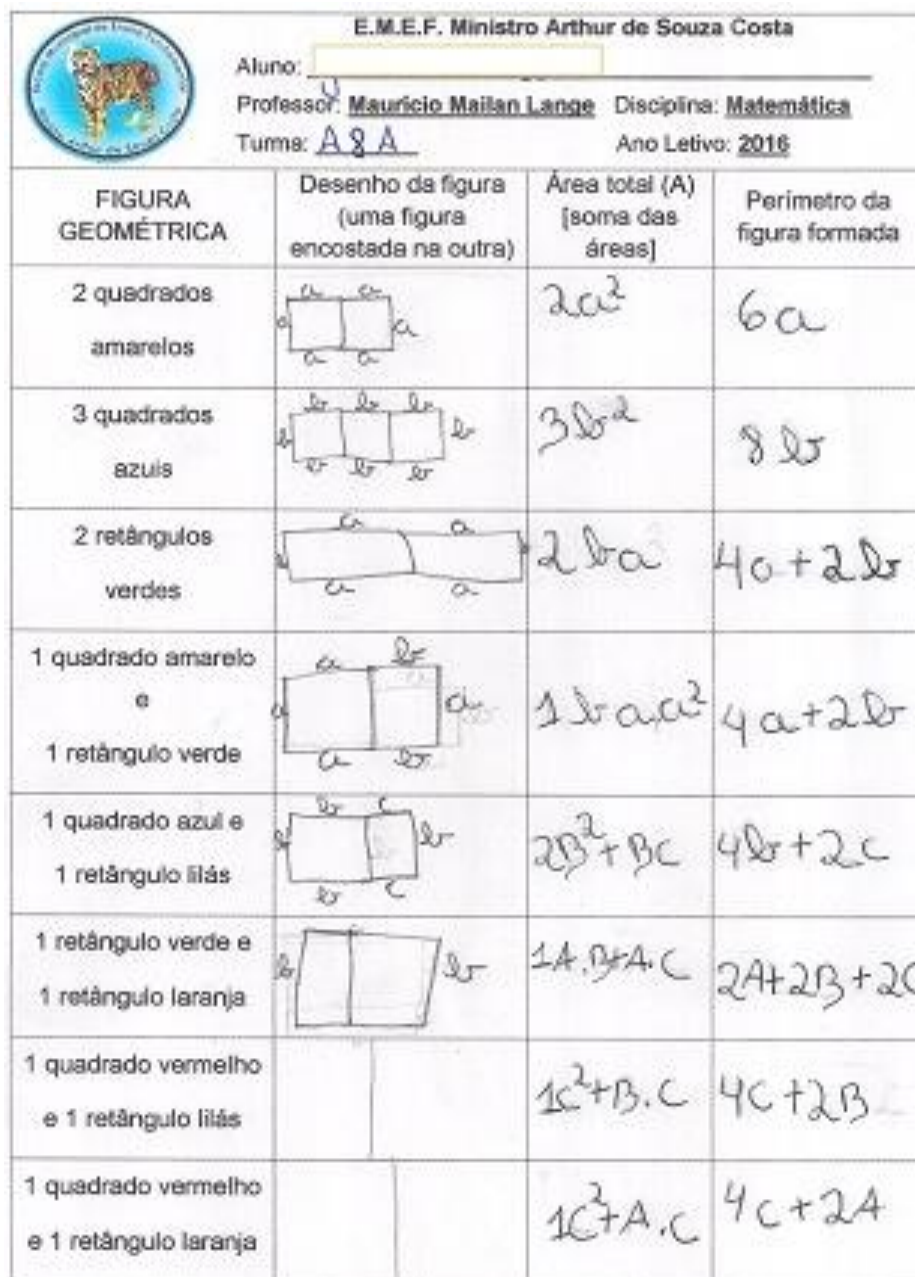 E.M.E.F. Ministro Arthur de Souza Costa
Aluno:
Professor: Mauricio Mailan Lange Disciplina: Matemática
Turma: A8A Ano Letivo: 2016
FIGURA GEOMÉTRICA
Desenho da figura
(uma figura
encostada na outra)
Área total (A)
[soma das
áreas]
Perímetro da
figura formada
2 quadrados
amarelos
a a
a a
a a
2a²
6a
3 quadrados
azuis
b b b
b b
b b b
3b²
8b
2 retângulos
verdes
a a
b
a a
2ba
4a+2b
1 quadrado amarelo
e
1 retângulo verde
a b
a a
a b
1ba.a²
4a+2b
1 quadrado azul e
1 retângulo lilás
b c
b b
b c
2B²+BC
4b+2c
1 retângulo verde e
1 retângulo laranja
b b
1A.B+A.C
2A+2B+2C
1 quadrado vermelho
e 1 retângulo lilás
1C²+B.C
4C+2B
1 quadrado vermelho
e 1 retângulo laranja
1C²+A.C
4C+2A